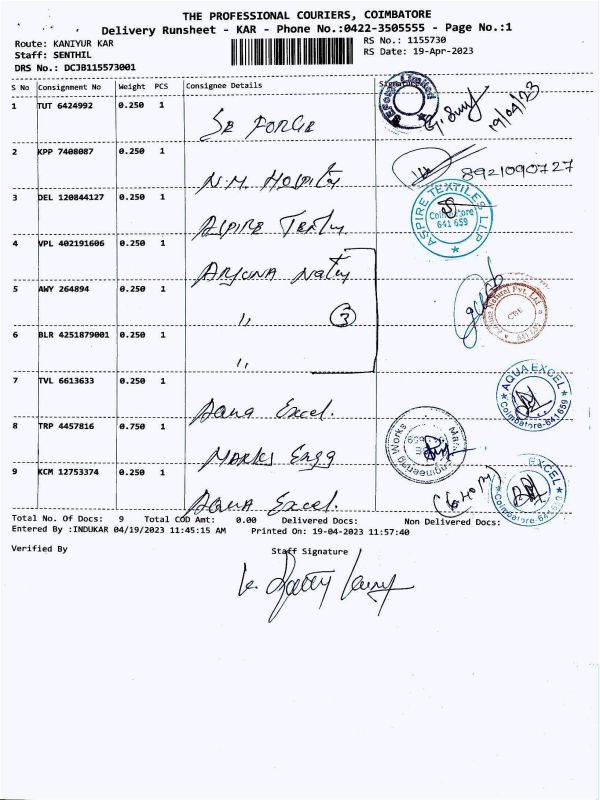 THE PROFESSIONAL COURIERS, COIMBATORE
Delivery Runsheet - KAR - Phone No.:0422-3505555 - Page No.:1
Route: KANIYUR KAR
RS No.: 1155730
Staff: SENTHIL
RS Date: 19-Apr-2023
DRS No.: DCJB115573001
S No Consignment No Weight PCS Consignee Details Signature
1 TUT 6424992 0.250 1
19/04/23
2 KPP 7408087 0.250 1
8921090727
3 DEL 120844127 0.250 1
ASPIRE TEXTILES LLP
Coimbatore
641 659
4 VPL 402191606 0.250 1
5 AWY 264894 0.250 1
3
6 BLR 4251879001 0.250 1
7 TVL 6613633 0.250 1
AQUA EXCEL
Coimbatore-641 659
Excel.
8 TRP 4457816 0.750 1
Engineering Works
Marks Engg
9 KCM 12753374 0.250 1
EXCEL
Excel.
Total No. Of Docs: 9 Total COD Amt: 0.00 Delivered Docs: Non Delivered Docs:
Entered By :INDUKAR 04/19/2023 11:45:15 AM Printed On: 19-04-2023 11:57:40
Verified By Staff Signature